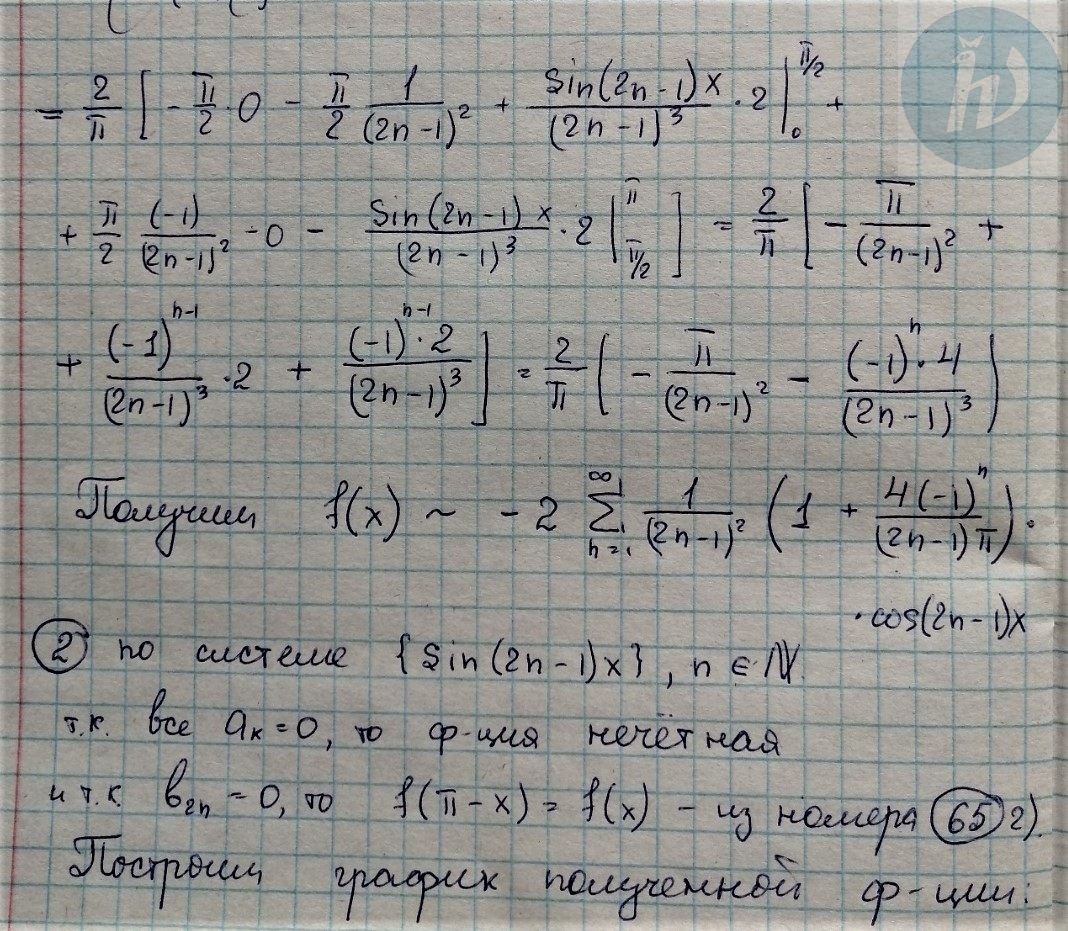 = 2/π [ - π/2 · 0 - π/2 1/(2n-1)² + sin(2n-1)x/(2n-1)³ · 2 |₀^{π/2} +
+ π/2 (-1)/(2n-1)² - 0 - sin(2n-1)x/(2n-1)³ · 2 |_{π/2}^{π} ] = 2/π [ - π/(2n-1)² +
+ (-1)^{n-1}/(2n-1)³ · 2 + (-1)^{n-1} · 2/(2n-1)³ ] = 2/π ( - π/(2n-1)² - (-1)^n · 4/(2n-1)³ )
Получим f(x) ~ -2 ∑_{n=1}^{∞} 1/(2n-1)² (1 + 4(-1)^n/((2n-1)π)) ·
· cos(2n-1)x
② по системе {sin(2n-1)x}, n ∈ ℕ.
т.к. все aₖ = 0, то ф-ция нечётная
и т.к. b₂ₙ = 0, то f(π-x) = f(x) - из номера 65 г).
Построим график полученной ф-ции: